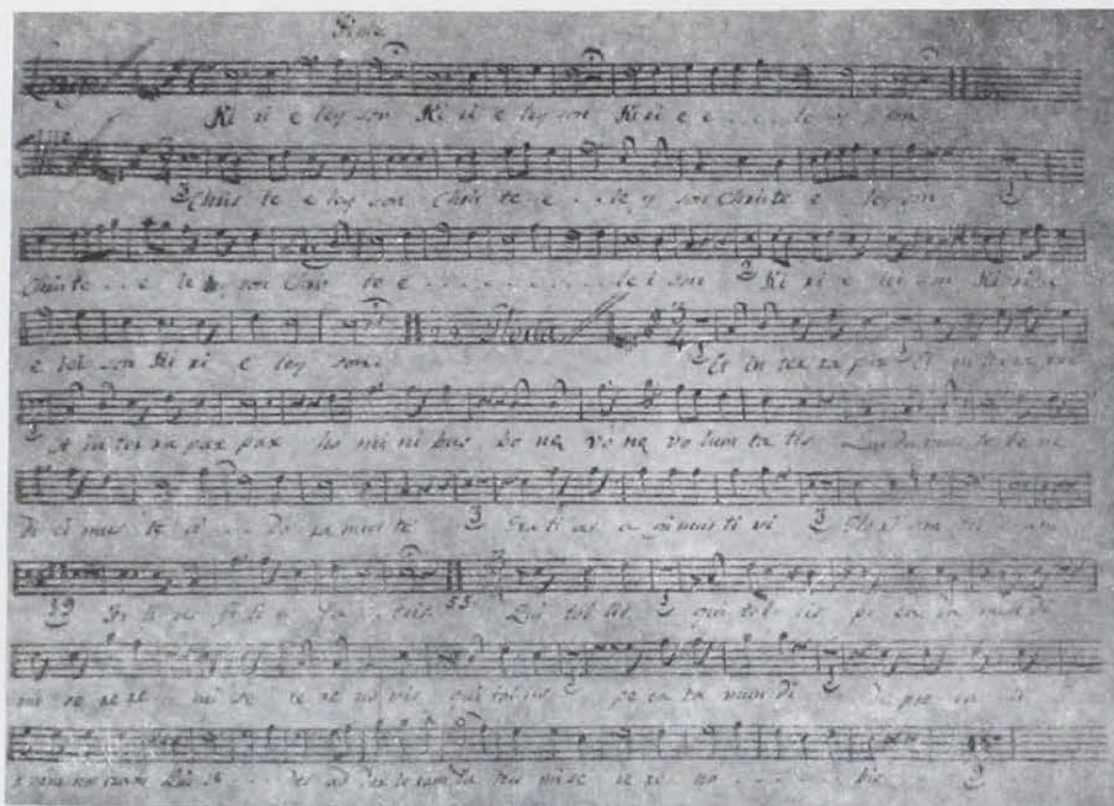 Ki ri e ley son Ki ri e ley son Ki ri e e . . . . le y son
3 Chris te e ley son Chris te e . . le y son Christe e ley son 1
Christe . . e le y son Chris te e . . . . . . . . . le i son 2 Ki ri e lei son Ki ri e
e lei son Ki ri e ley son. 29 Gloria 3 4 1 Et in ter ra pax 1 Et in ter ra pax
1 Et in ter ra pax pax ho mi ni bus bo ne vo ne vo lum ta tis Lau da mus te be ne
di ci mus te a . . . do ra mus te 3 Gra ti as a gi mus ti vi 3 Glo ri am tu am
39 fi li us Pa . . tris 55 Qui tol lis 1 qui tol lis pe ca ta mun di
mi se re re mi se re re no vis qui tol lis 1 pe ca ta mun di 1 De pre ca
nos tram Qui se . . des ad dex te ram Pa tris mi se re re no . . . . . bis